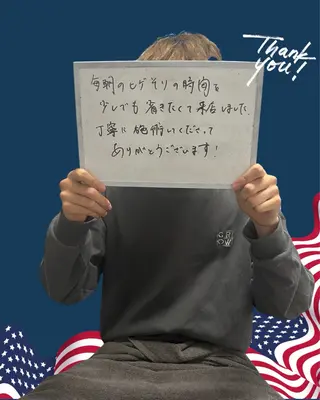 Thank
you!
毎朝のヒゲそりの時間を
少しでも省きたくて来店しました。
丁寧に施術いただきまして
ありがとうございます!